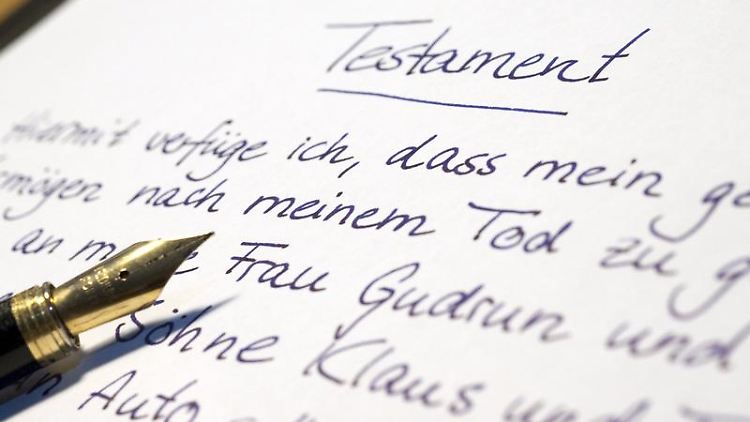 Testament
Hiermit verfüge ich, dass mein ge
rmögen nach meinem Tod zu g
an m e Frau Gudrun und
Söhne Klaus und T
n Auto